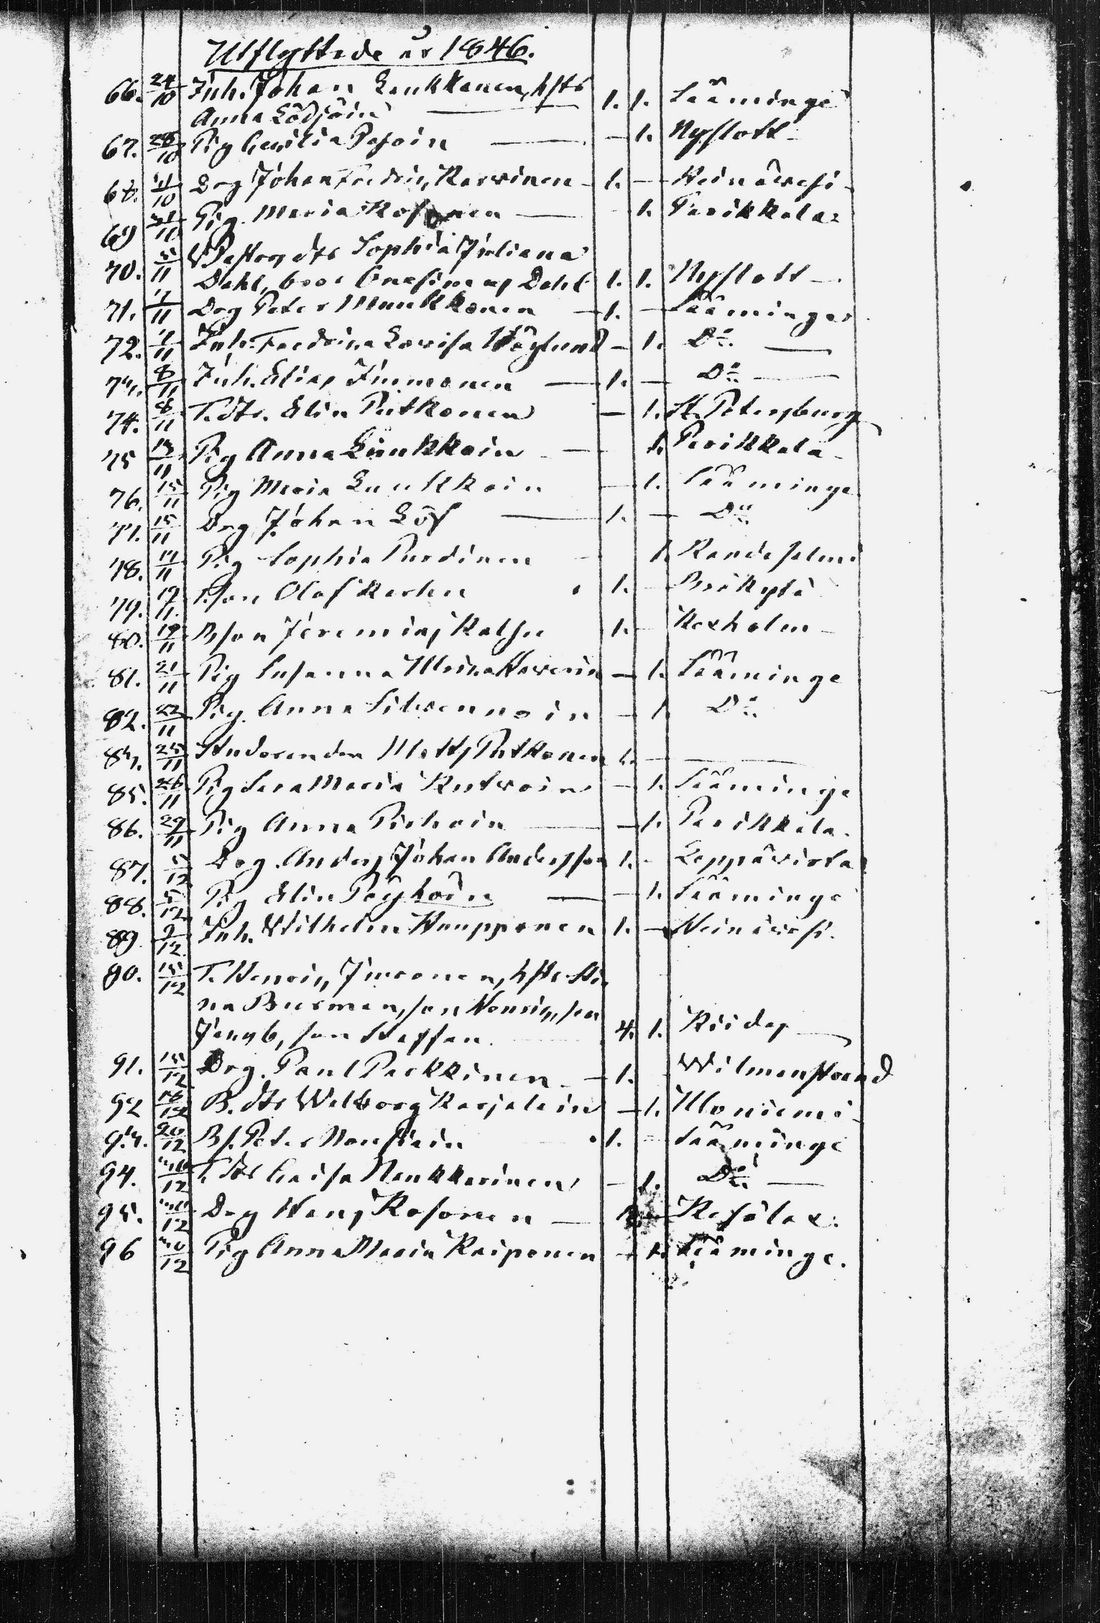 Utflyttade år 1846.
66. 24/10 Inh. Johan Laukkanen, hfts 1. 1. Sääminge
Anna Lödjöin
67. 28/10 Pig Cecilia Pesoin — 1. Nyslott
68. 31/10 Drg Johan Fredric Karvinen 1. — Heinävesi
69 31/10 Pig. Maria Kosonen — 1. Parikkala
70. 5/11 dtr Sophia Juliana
Dahl, bror Onesimus Dahl 1. 1. Nyslott
71. /11 Drg Peter Munkkonen 1. — Sääminge
72. /11 Inh. Fredrica Lovisa Höglund — 1. Do
73. 8/11 Inh. Elias Immonen — 1. — Do
74. 8/11 T.dtr. Elin Putkonen — 1. St. Petersburg
75 13/11 Pig Anna Liukkoin — 1. Parikkala
76. 15/11 Pig Maria Laukkain — 1. Sääminge
77. 15/11 Drg Johan Löf — 1. — Do
78. 17/11 Pig Sophia Pardinen 1. Randasalmi
79. 17/11 son Olof 1. — Bräkylä
80. 19/11 B.son Jeremias 1. — Kexholm
81. 21/11 Pig Susanna — 1. Sääminge
82. 22/11 Pig. Anna Silvennoin — 1. Do
84. 25/11 Studeranden Matts Putkonen 1. —
85. 26/11 Pig Sara Maria Kutvoin — 1. Sääminge
86. 29/11 Pig Anna Pirhoin — 1. Parikkala.
87. 5/12 Drg. Anders Johan Andersson 1. — Leppävirta
88. 5/12 Pig Elin Pöyhöin — 1. Sääminge
89. 9/12 Inh. Wilhelm Haupponen 1. — Heinävesi.
90. 15/12 T. Henric Imonen, hfts Sti-
na Burman, son Henric, son
Jacob, son Staffan. 4. 1. Kides
91. 15/12 Drg. Paul Parkkinen — 1. Wilmanstrand
92 /12 B. dtr Walborg Karjalain — 1. Uloniemi
93. 20/12 Bs. Peter 1. Sääminge
94. /12 T. dtr Caisa Naukkarinen — 1. Do
95. /12 Drg Hans Kosonen — 1. Kesälax.
96 30/12 Pig Anna Maria Kaiponen — 1. Sääminge.